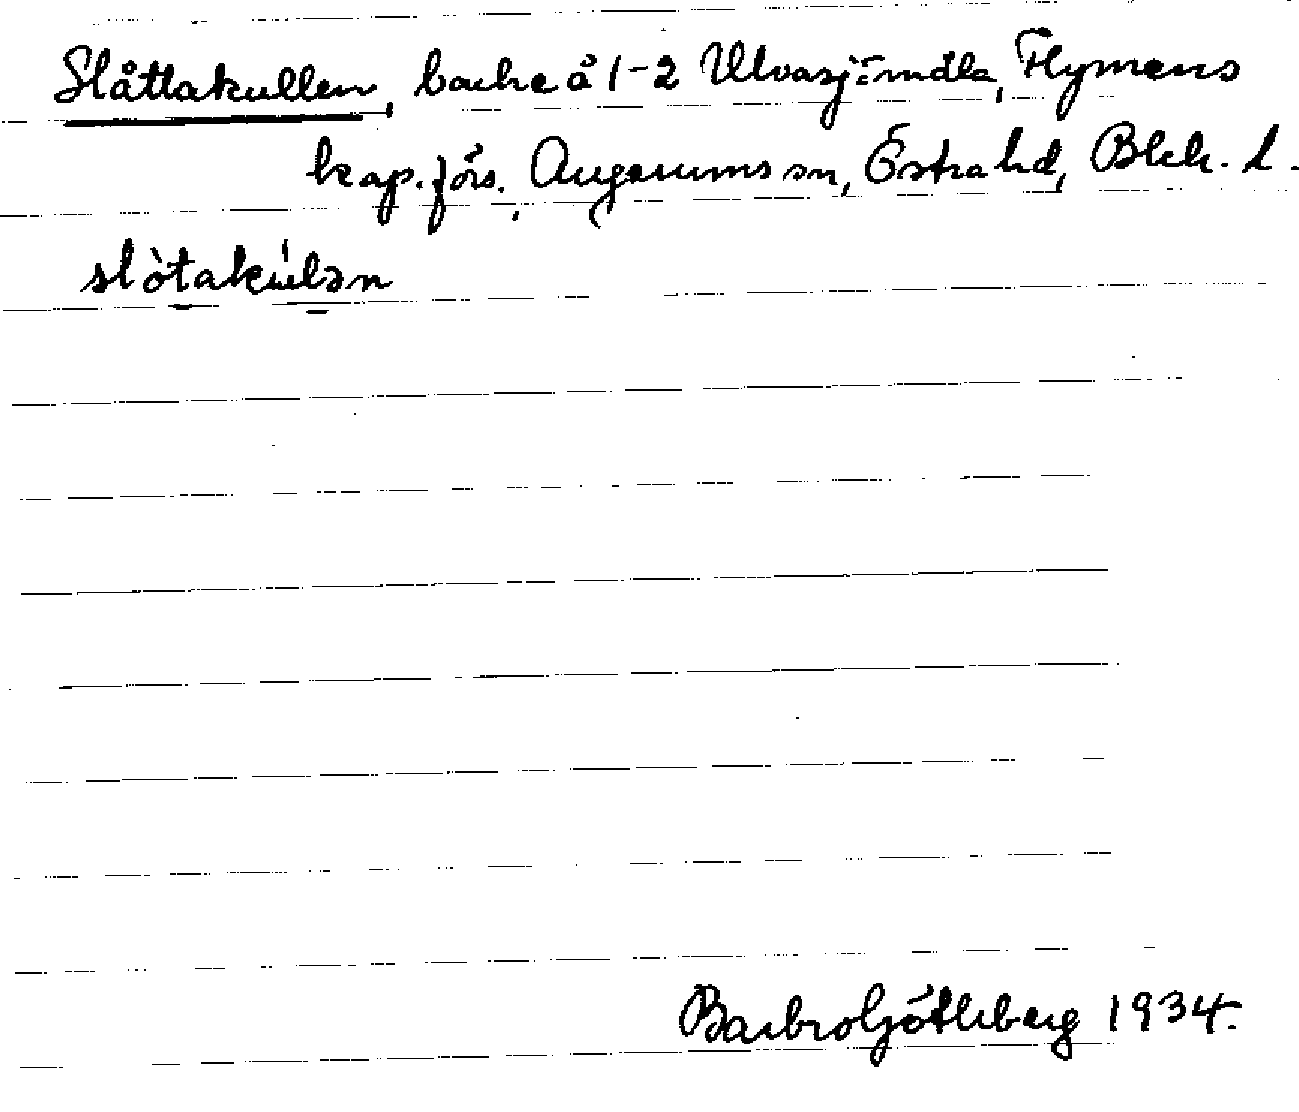 Slåttakullen, backe å 1-2 Ulvasjömåla, Flymens
kap. förs., Augerums sn, Östra hd, Blek. l.
slòtakúlən
Barbro Götleberg 1934.